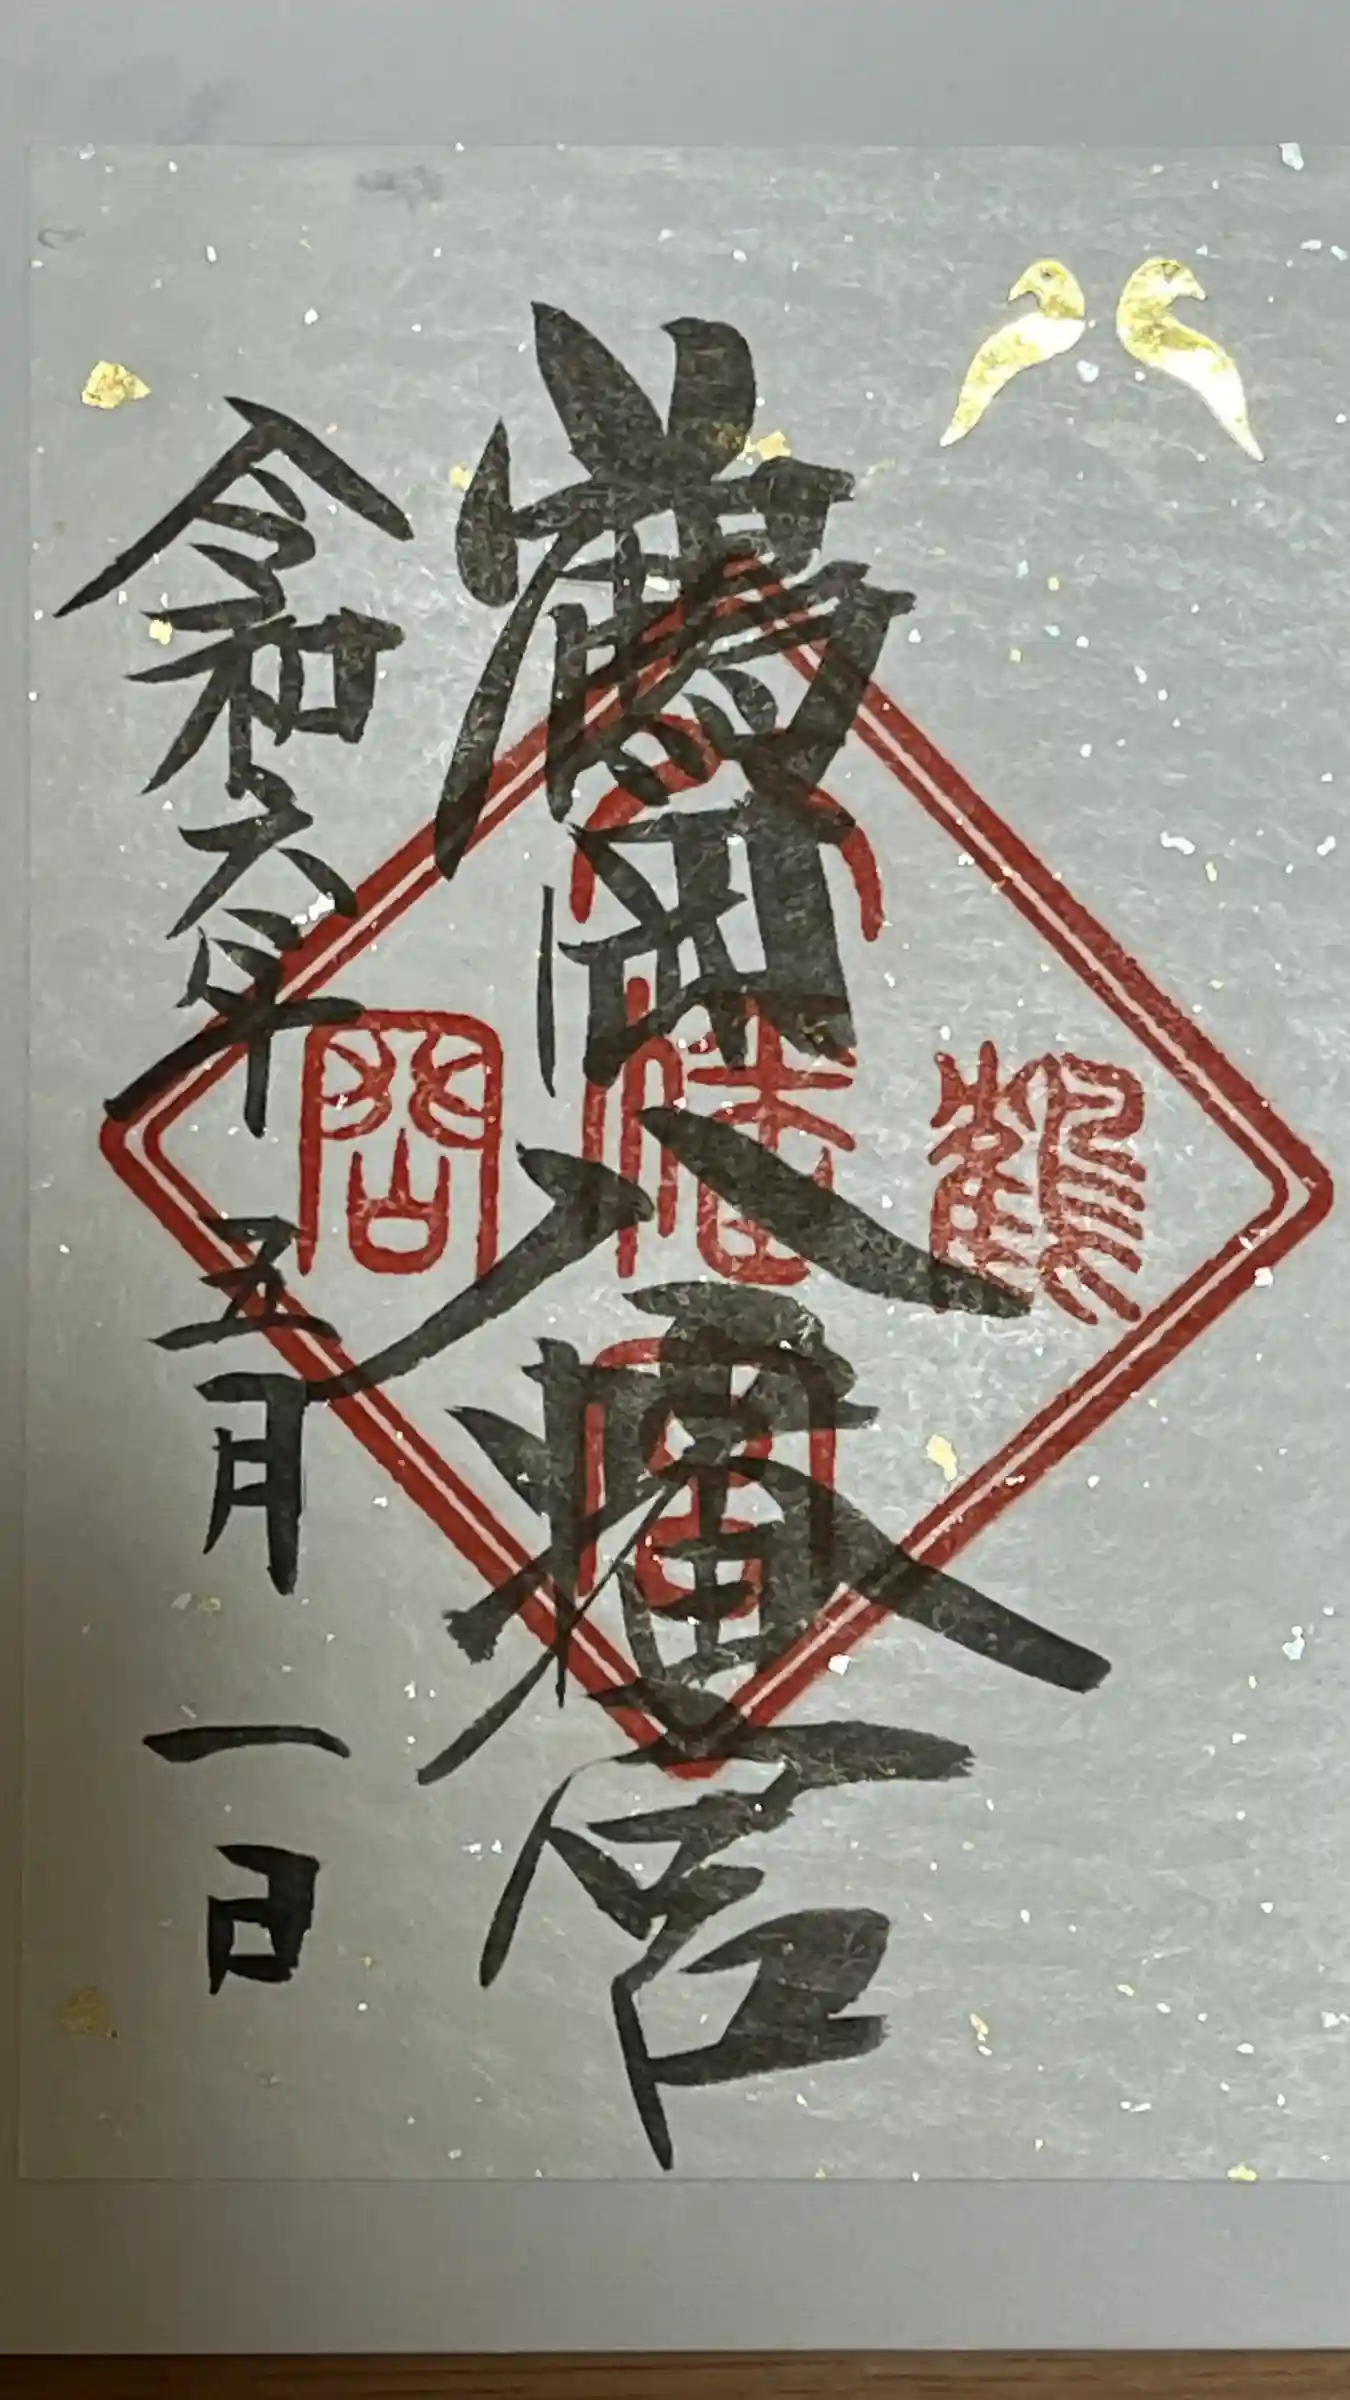 鶴岡八幡宮
令和六年五月一日
鶴
八幡宮
岡